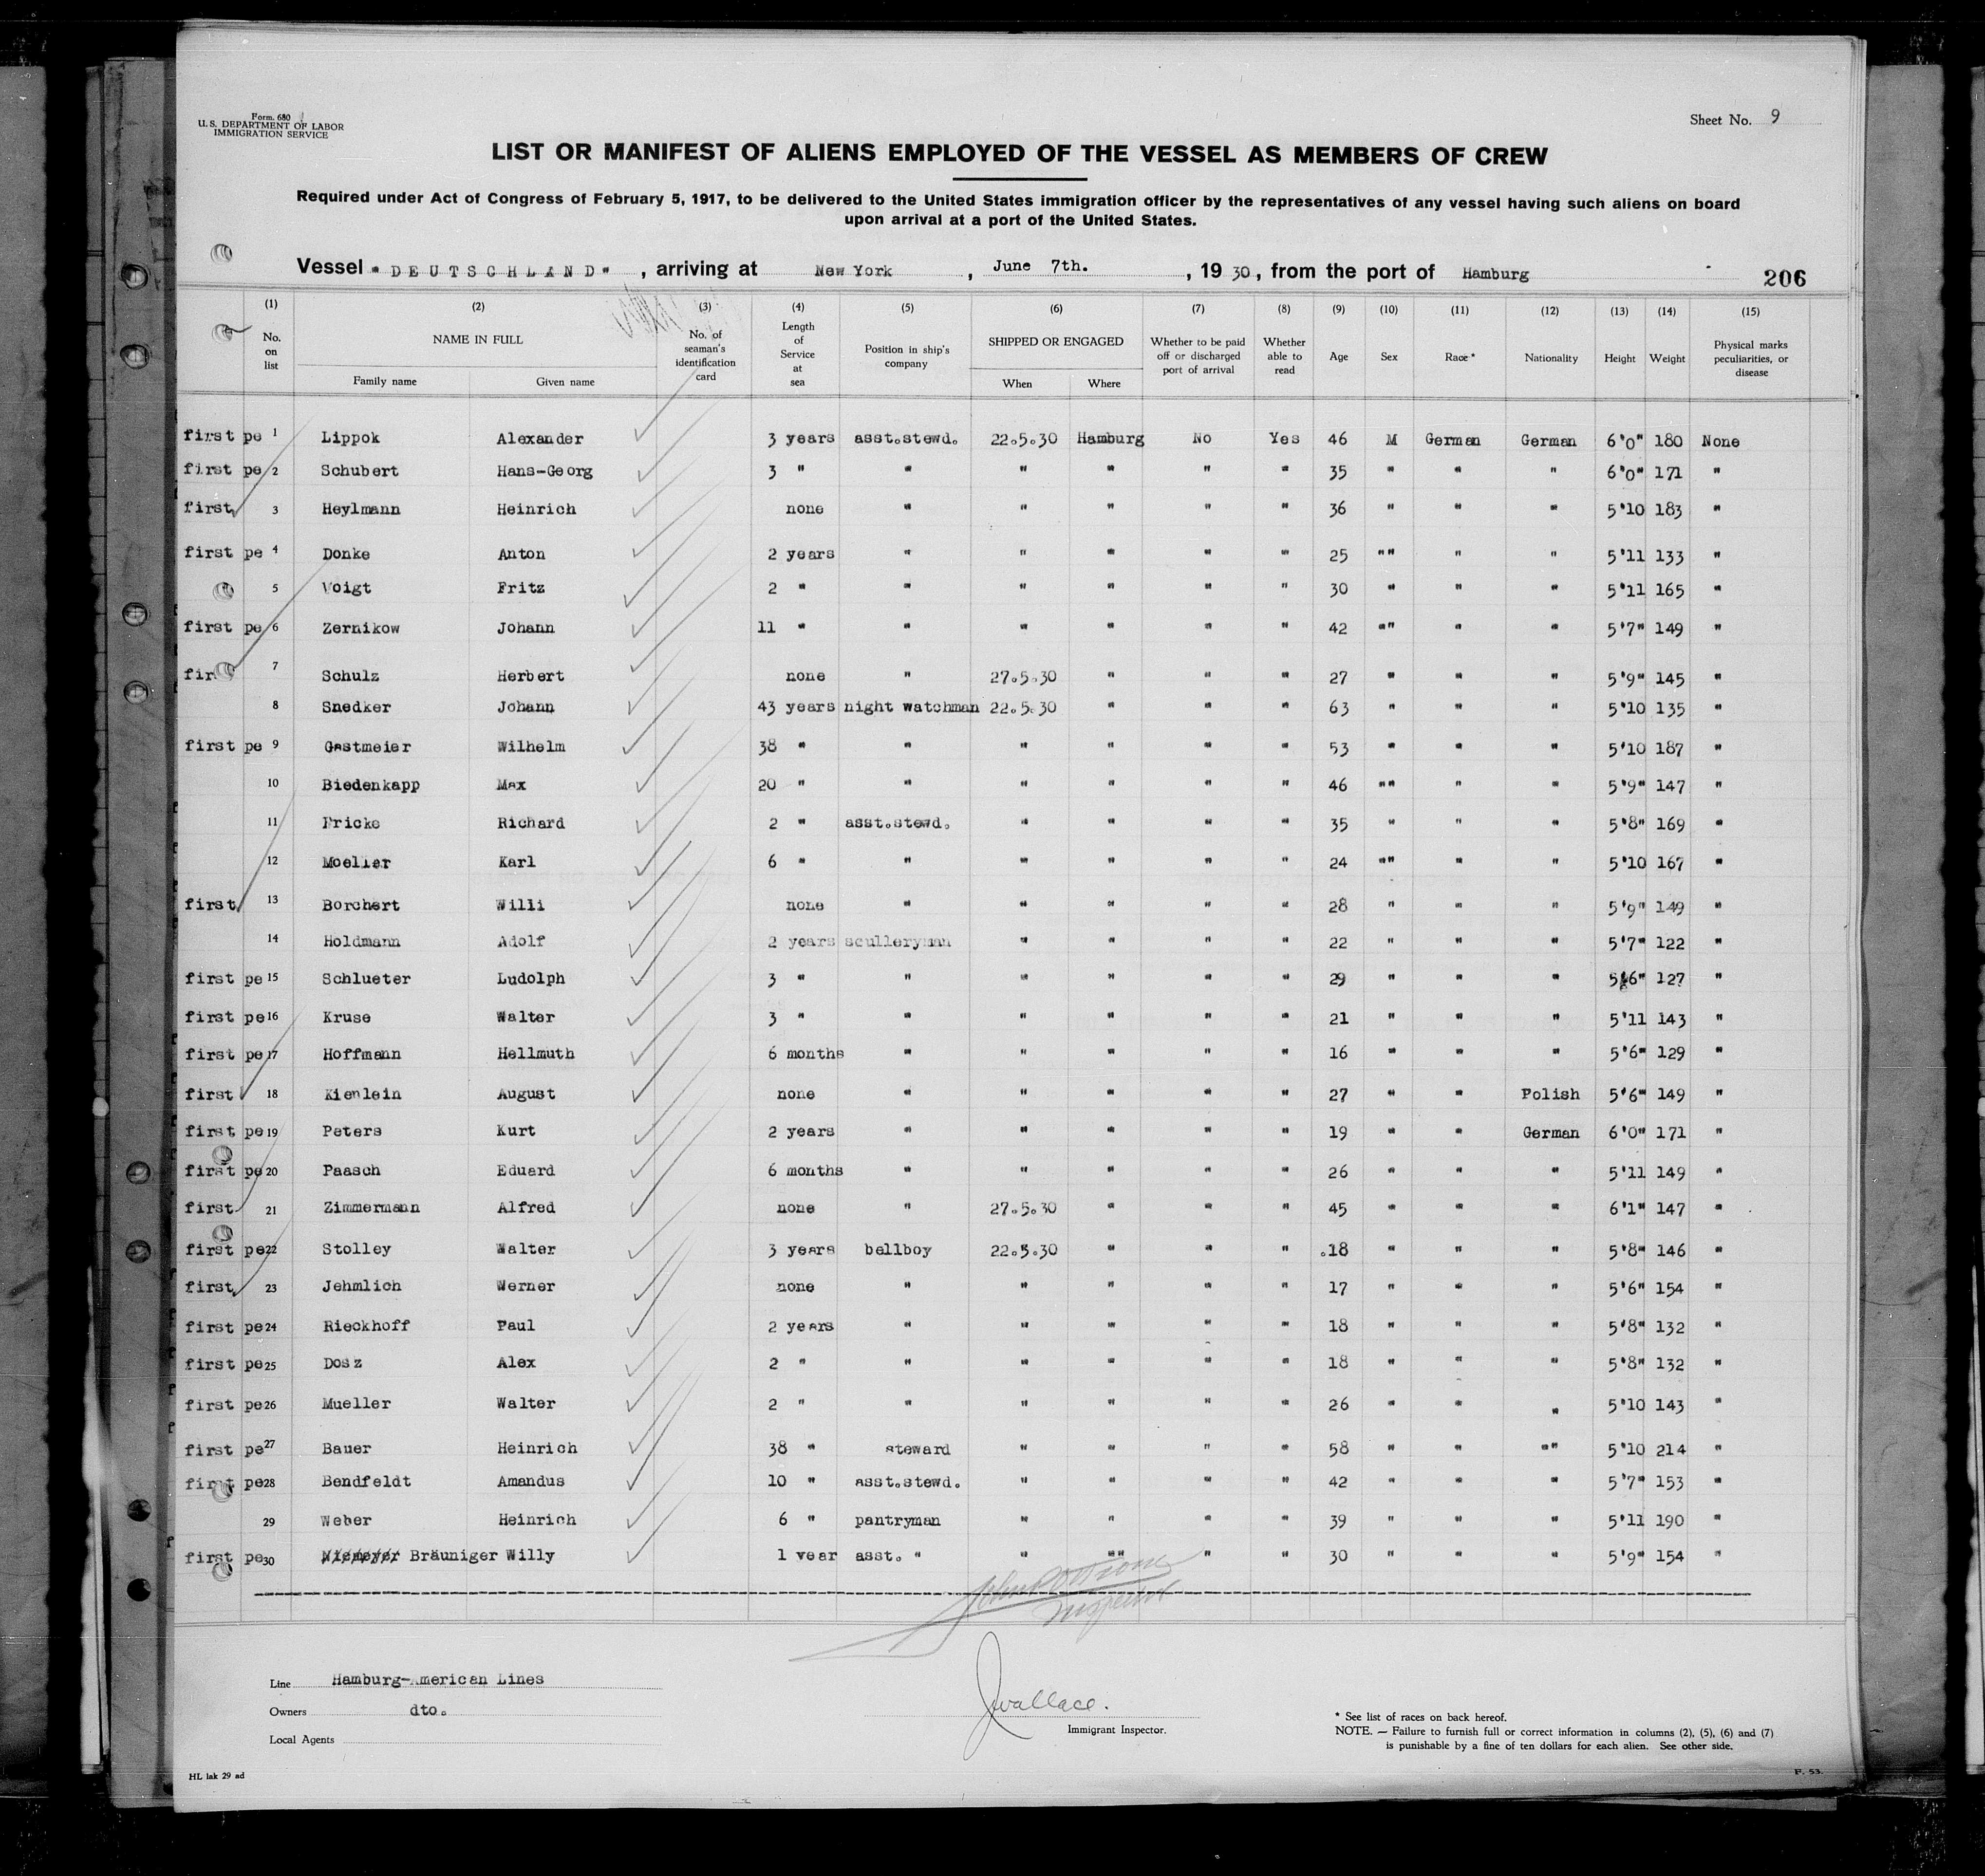 Form. 680
U. S. DEPARTMENT OF LABOR
IMMIGRATION SERVICE
Sheet No. 9
LIST OR MANIFEST OF ALIENS EMPLOYED OF THE VESSEL AS MEMBERS OF CREW
Required under Act of Congress of February 5, 1917, to be delivered to the United States immigration officer by the representatives of any vessel having such aliens on board
upon arrival at a port of the United States.
Vessel "DEUTSCHLAND", arriving at New York, June 7th., 1930, from the port of Hamburg
206
(1) (2) (3) (4) (5) (6) (7) (8) (9) (10) (11) (12) (13) (14) (15)
No. on list NAME IN FULL Family name Given name No. of seaman's identification card Length of Service at sea Position in ship's company SHIPPED OR ENGAGED When Where Whether to be paid off or discharged port of arrival Whether able to read Age Sex Race * Nationality Height Weight Physical marks peculiarities, or disease
first pe 1 Lippok Alexander 3 years asst.stewd. 22.5.30 Hamburg No Yes 46 M German German 6'0" 180 None
first pe 2 Schubert Hans-Georg 3 " " " " " " 35 " " " 6'0" 171 "
first 3 Heylmann Heinrich none " " " " " 36 " " " 5'10 183 "
first pe 4 Donke Anton 2 years " " " " " 25 "" " " 5'11 133 "
5 Voigt Fritz 2 " " " " " " 30 " " " 5'11 165 "
first pe 6 Zernikow Johann 11 " " " " " " 42 "" " " 5'7" 149 "
fir 7 Schulz Herbert none " 27.5.30 " " " 27 " " " 5'9" 145 "
8 Snedker Johann 43 years night watchman 22.5.30 " " " 63 " " " 5'10 135 "
first pe 9 Gastmeier Wilhelm 38 " " " " " " 53 " " " 5'10 187 "
10 Biedenkapp Max 20 " " " " " " 46 "" " " 5'9" 147 "
11 Fricke Richard 2 " asst.stewd. " " " " 35 " " " 5'8" 169 "
12 Moeller Karl 6 " " " " " " 24 "" " " 5'10 167 "
first 13 Borchert Willi none " " " " " 28 " " " 5'9" 149 "
14 Holdmann Adolf 2 years sculleryman " " " " 22 " " " 5'7" 122 "
first pe 15 Schlueter Ludolph 3 " " " " " " 29 " " " 5'6" 127 "
first pe 16 Kruse Walter 3 " " " " " " 21 " " " 5'11 143 "
first pe 17 Hoffmann Hellmuth 6 months " " " " " 16 " " " 5'6" 129 "
first 18 Kienlein August none " " " " " 27 " " Polish 5'6" 149 "
first pe 19 Peters Kurt 2 years " " " " " 19 " " German 6'0" 171 "
first pe 20 Paasch Eduard 6 months " " " " " 26 " " " 5'11 149 "
first 21 Zimmermann Alfred none " 27.5.30 " " " 45 " " " 6'1" 147 "
first pe 22 Stolley Walter 3 years bellboy 22.5.30 " " " 18 " " " 5'8" 146 "
first 23 Jehmlich Werner none " " " " " 17 " " " 5'6" 154 "
first pe 24 Rieckhoff Paul 2 years " " " " " 18 " " " 5'8" 132 "
first pe 25 Dosz Alex 2 " " " " " " 18 " " " 5'8" 132 "
first pe 26 Mueller Walter 2 " " " " " " 26 " " " 5'10 143 "
first pe 27 Bauer Heinrich 38 " steward " " " " 58 " " "" 5'10 214 "
first pe 28 Bendfeldt Amandus 10 " asst.stewd. " " " " 42 " " " 5'7" 153 "
29 Weber Heinrich 6 " pantryman " " " " 39 " " " 5'11 190 "
first pe 30 Niemeyer Bräuniger Willy 1 year asst. " " "" " " 30 " " " 5'9" 154 "
Inspector
Line Hamburg-American Lines
Owners dto.
Local Agents
JWallace.
Immigrant Inspector.
* See list of races on back hereof.
NOTE. — Failure to furnish full or correct information in columns (2), (5), (6) and (7)
is punishable by a fine of ten dollars for each alien. See other side.
HL lak 29 ad
F. 53.